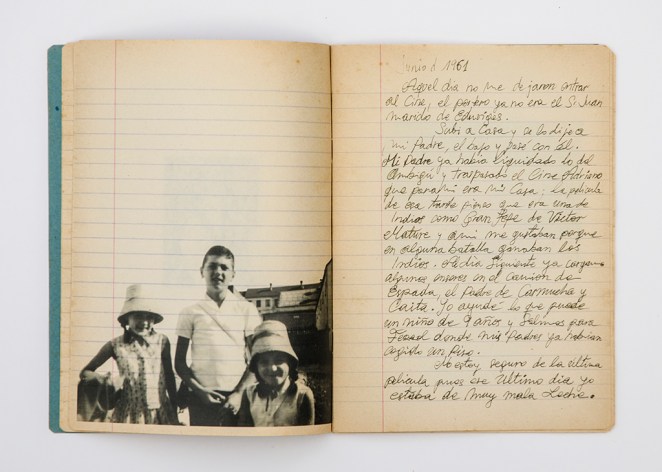 Junio d 1961
Aquel dia no me dejaron entrar
al Cine, el portero ya no era el Sr Juan
marido de Eduviges.
Subi a Casa y se lo dije a
mi Padre, el bajo y pasé con él.
Mi Padre ya habia liquidado lo del
Ambigú y traspasado el Cine Adriano
que para mi era mi Casa: La pelicula
de esa tarde pienso que era una de
Indios como Gran Jefe de Victor
Mature y a mi me gustaban porque
en alguna batalla ganaban los
Indios. Al dia siguiente ya cargamos
algunos enseres en el Camion de
Espada, el Padre de Carmucha y
Caita. Yo ayudé lo que puede
un niño de 9 años y salimos para
Ferrol donde mis Padres ya habian
cogido un Piso.
No estoy seguro de la ultima
pelicula pues ese Ultimo dia yo
estaba de muy mala Leche.